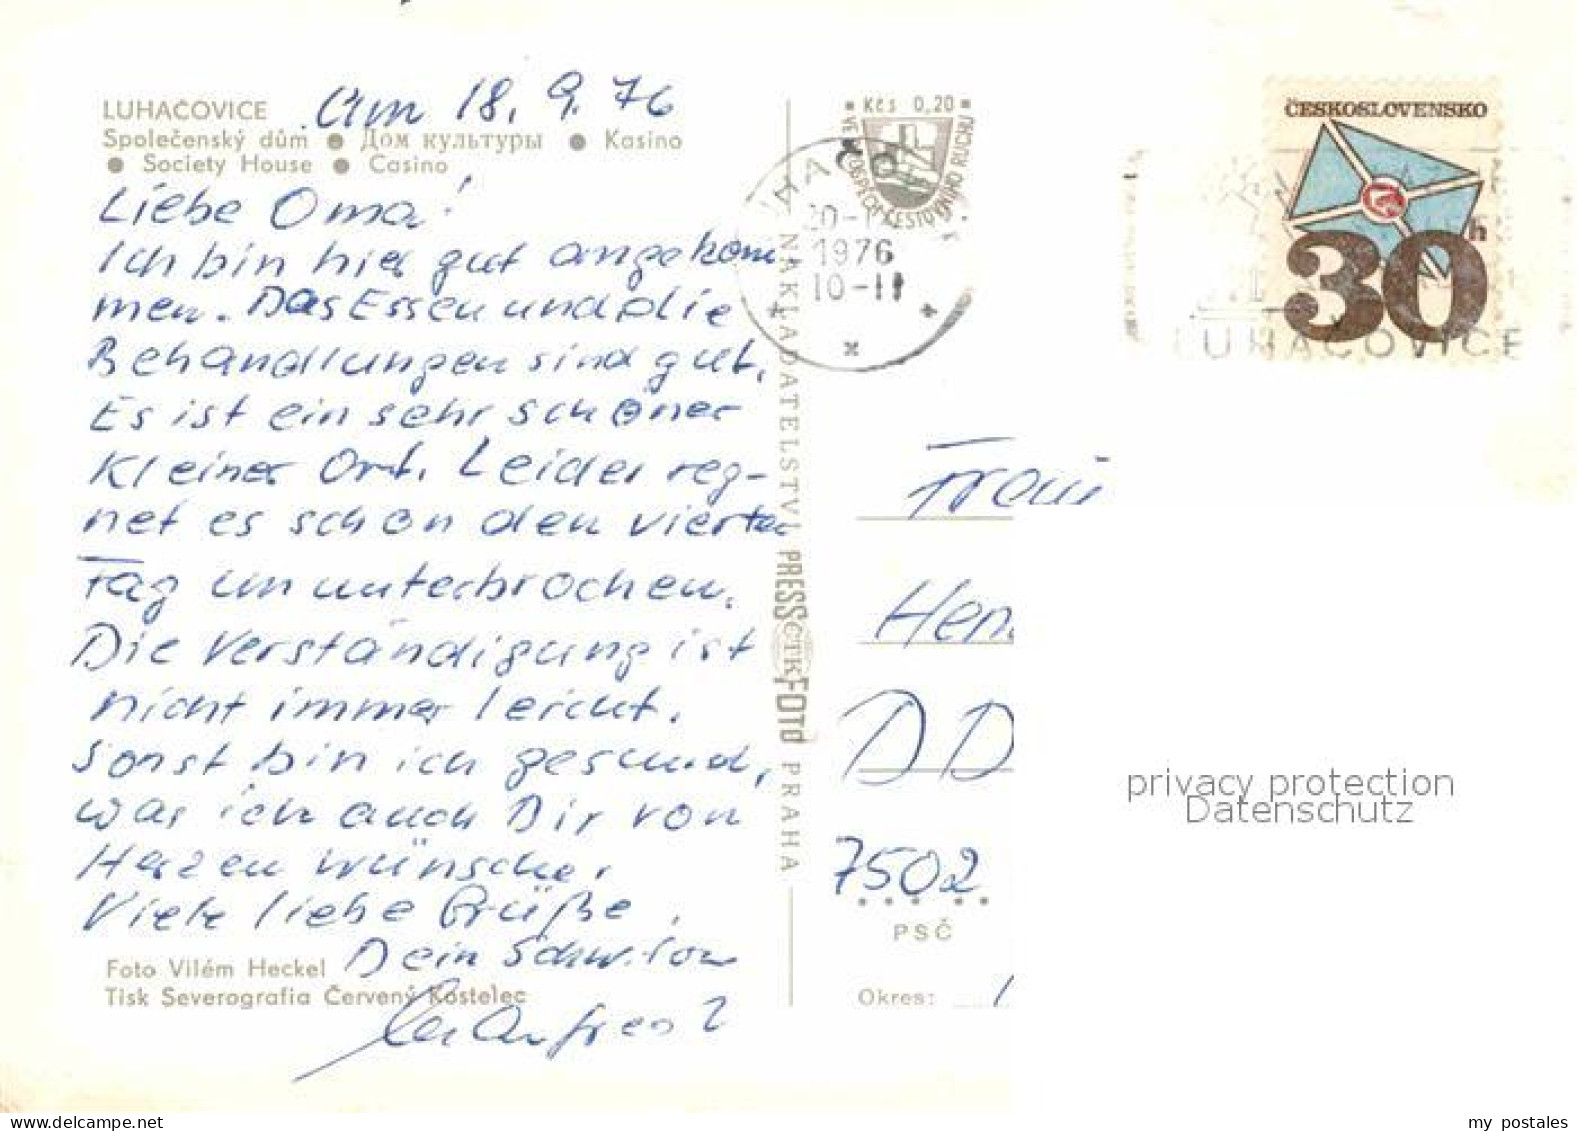 LUHAČOVICE
Am 18. 9. 76
Společenský dům ● Дом культуры ● Kasino
● Society House ● Casino
Liebe Oma!
Ich bin hier gut angekom
men. Das Essen und die
Behandlungen sind gut.
Es ist ein sehr schöner
kleiner Ort. Leider reg-
net es schon den vierten
Tag ununterbrochen.
Die Verständigung ist
nicht immer leicht.
Sonst bin ich gesund,
was ich auch Dir von
Herzen wünsche.
Viele liebe Grüße,
Dein Schw.sohn
Manfred
Foto Vilém Heckel
Tisk Severografia Červený Kostelec
NAKLADATELSTVÍ PRESSFOTO PRAHA
ČTK
Kčs 0,20
1976
10-11
ČESKOSLOVENSKO
30h
LUHAČOVICE
Frau
Hen
DD
7502
PSČ
Okres:
privacy protection
Datenschutz
my postales